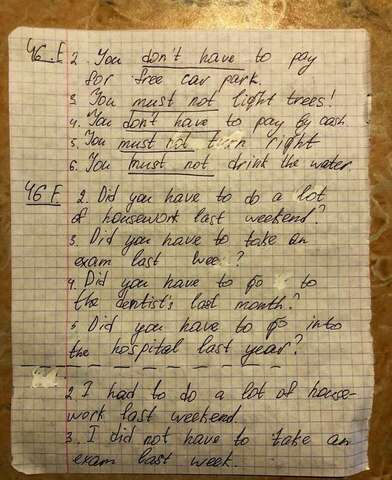 46.E 2. You don't have to pay
for free car park.
3 You must not light trees!
4. You don't have to pay by cash
5. You must not turn right
6. You must not drink the water
46 F. 2. Did you have to do a lot
of housework last weekend?
3. Did you have to take an
exam last week?
4. Did you have to go to
the dentist's last month?
5. Did you have to go into
the hospital last year?
2. I had to do a lot of house-
work last weekend.
3. I did not have to take an
exam last week.